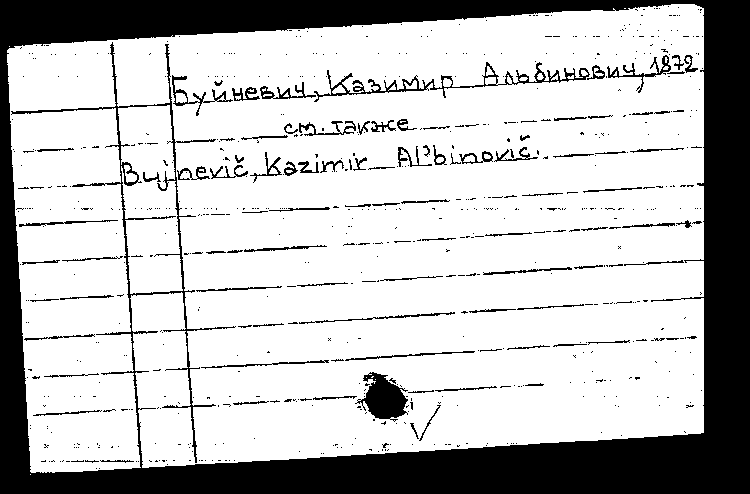 Буйневич, Казимир Альбинович, 1872
см. также
Bujnevič, Kazimir Alʹbinovič.